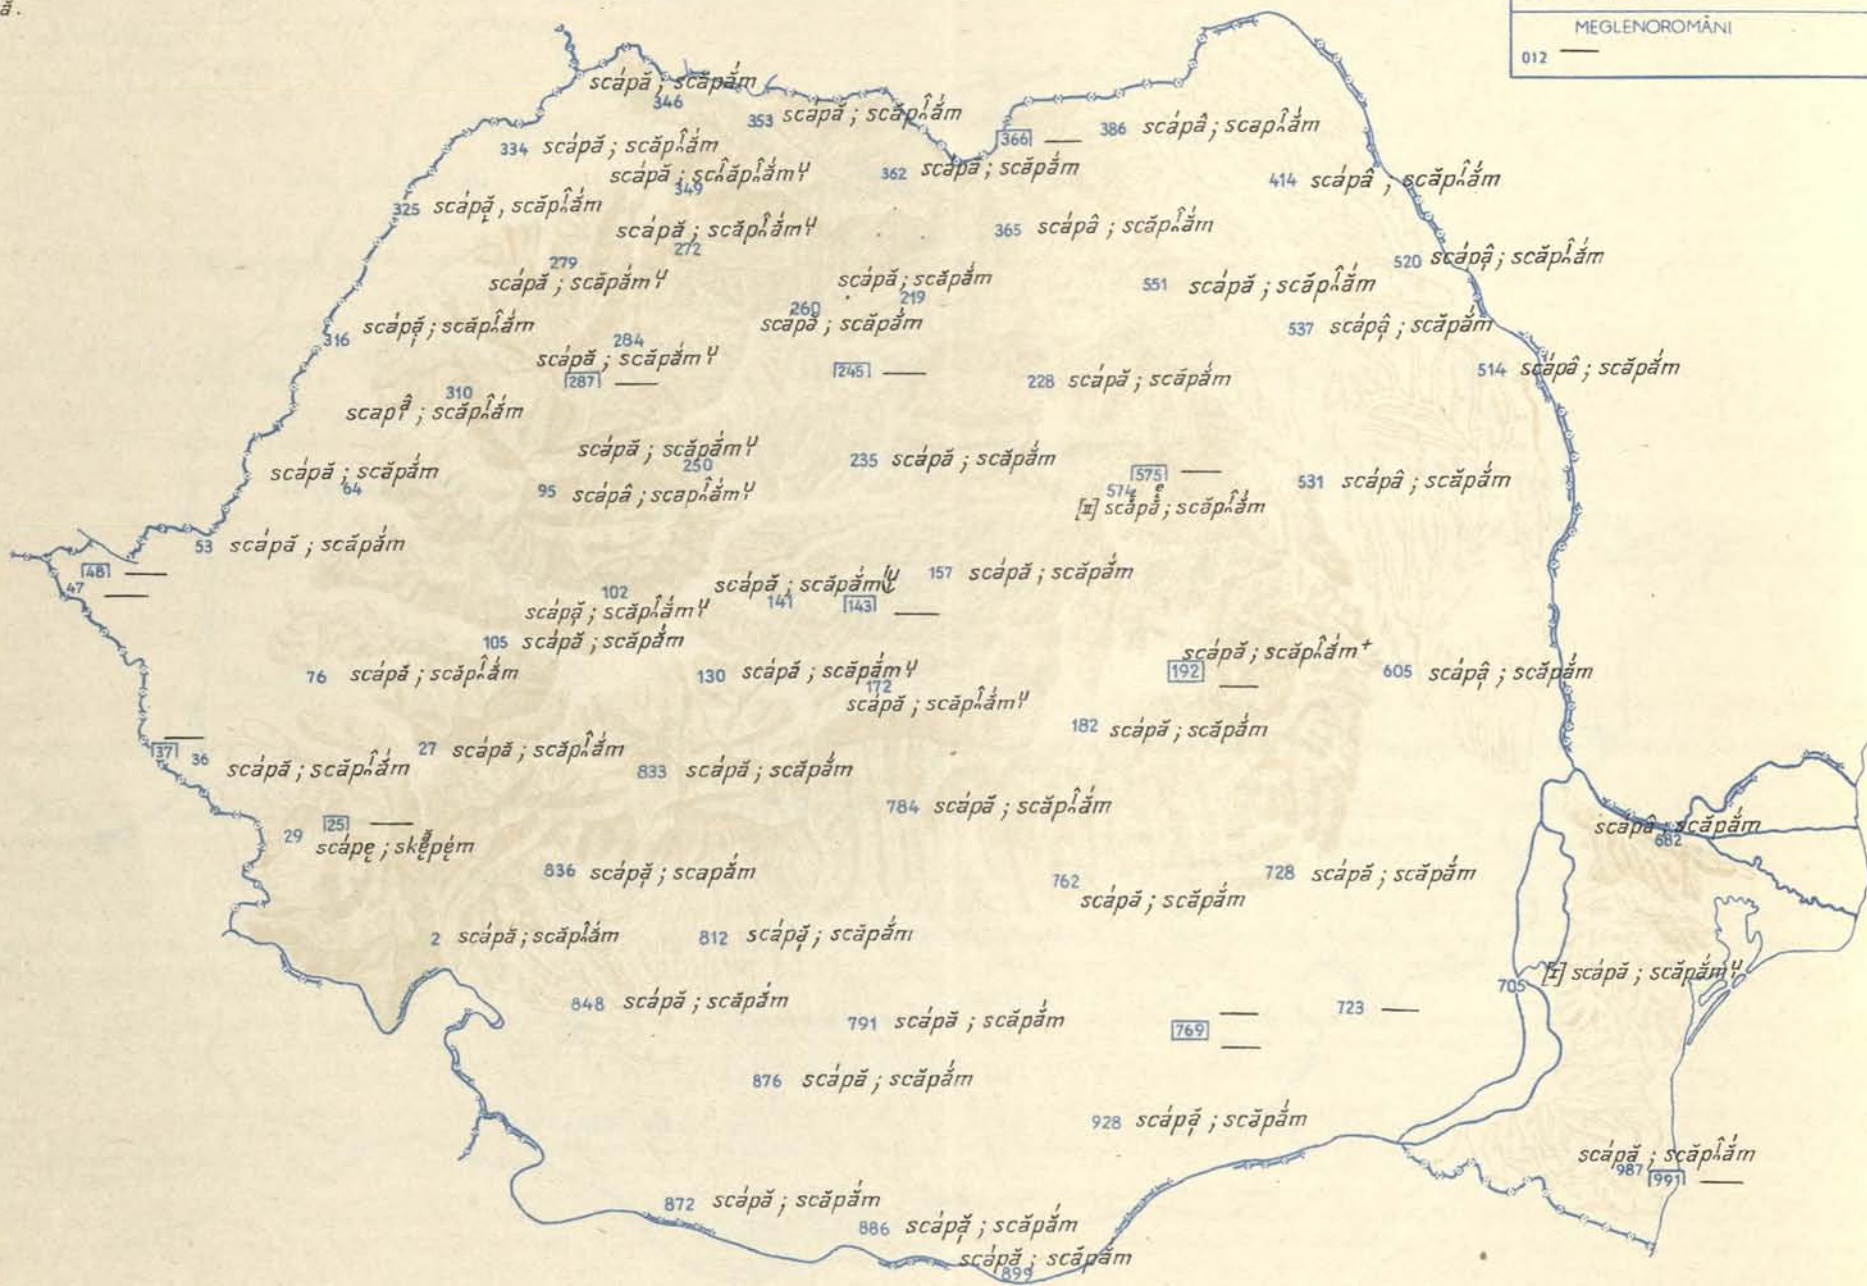 ă.
MEGLENOROMÂNI
012 —
scápă ; scăpắm
346
353 scápă ; scăpî̭ắm
334 scápă ; scăpî̭ắm
366 —
386 scápâ ; scapî̭ắm
scápă ; scî̭ăpî̭ắm
349
362 scápă ; scăpắm
414 scápâ ; scăpî̭ắm
325 scápă̭ , scăpî̭ắm
scápă ; scăpî̭ắm
272
365 scápâ ; scăpî̭ắm
520 scápậ ; scăpî̭ắm
279
scápă ; scăpắm
scápă ; scăpắm
219
551 scápă ; scăpî̭ắm
260
scápă ; scăpắm
316 scápặ ; scăpî̭ắm
537 scápậ ; scăpắm
284
scápă ; scăpắm
287 —
245 —
228 scápă ; scăpắm
514 scápâ ; scăpắm
310
scăpî̭ắm
scápă ; scăpắm
250
235 scápă ; scăpắm
575 —
531 scápâ ; scăpắm
scápă ; scăpắm
64
95 scápâ ; scapî̭ắm
574
[II] scăpî̭ắm
53 scápă ; scăpắm
48 —
47 —
scápă ; scăpắm
141
157 scápă ; scăpắm
102
scápặ ; scăpî̭ắm
143 —
105 scápă ; scăpắm
scápă ; scăpî̭ắm+
192 —
76 scápă ; scăpî̭ắm
130 scápă ; scăpắm
605 scápậ ; scăpắm
172
scápă ; scăpî̭ắm
182 scápă ; scăpắm
37 —
36 scápă ; scăpî̭ắm
27 scápă ; scăpî̭ắm
833 scápă ; scăpắm
784 scápă ; scăpî̭ắm
25 —
29 scápę ;
scápâ ; scăpắm
682
836 scápặ ; scapắm
762
scápă ; scăpắm
728 scápă ; scăpắm
2 scápă ; scăpî̭ắm
812 scápặ ; scăpắm
705 [I] scápă ; scăpắm
848 scápă ; scăpắm
791 scápă ; scăpắm
769 —
—
723 —
876 scápă ; scăpắm
928 scápặ ; scăpắm
scápă ; scăpî̭ắm
987
991 —
872 scápă ; scăpắm
886 scápặ ; scăpắm
scápă ; scăpắm
899